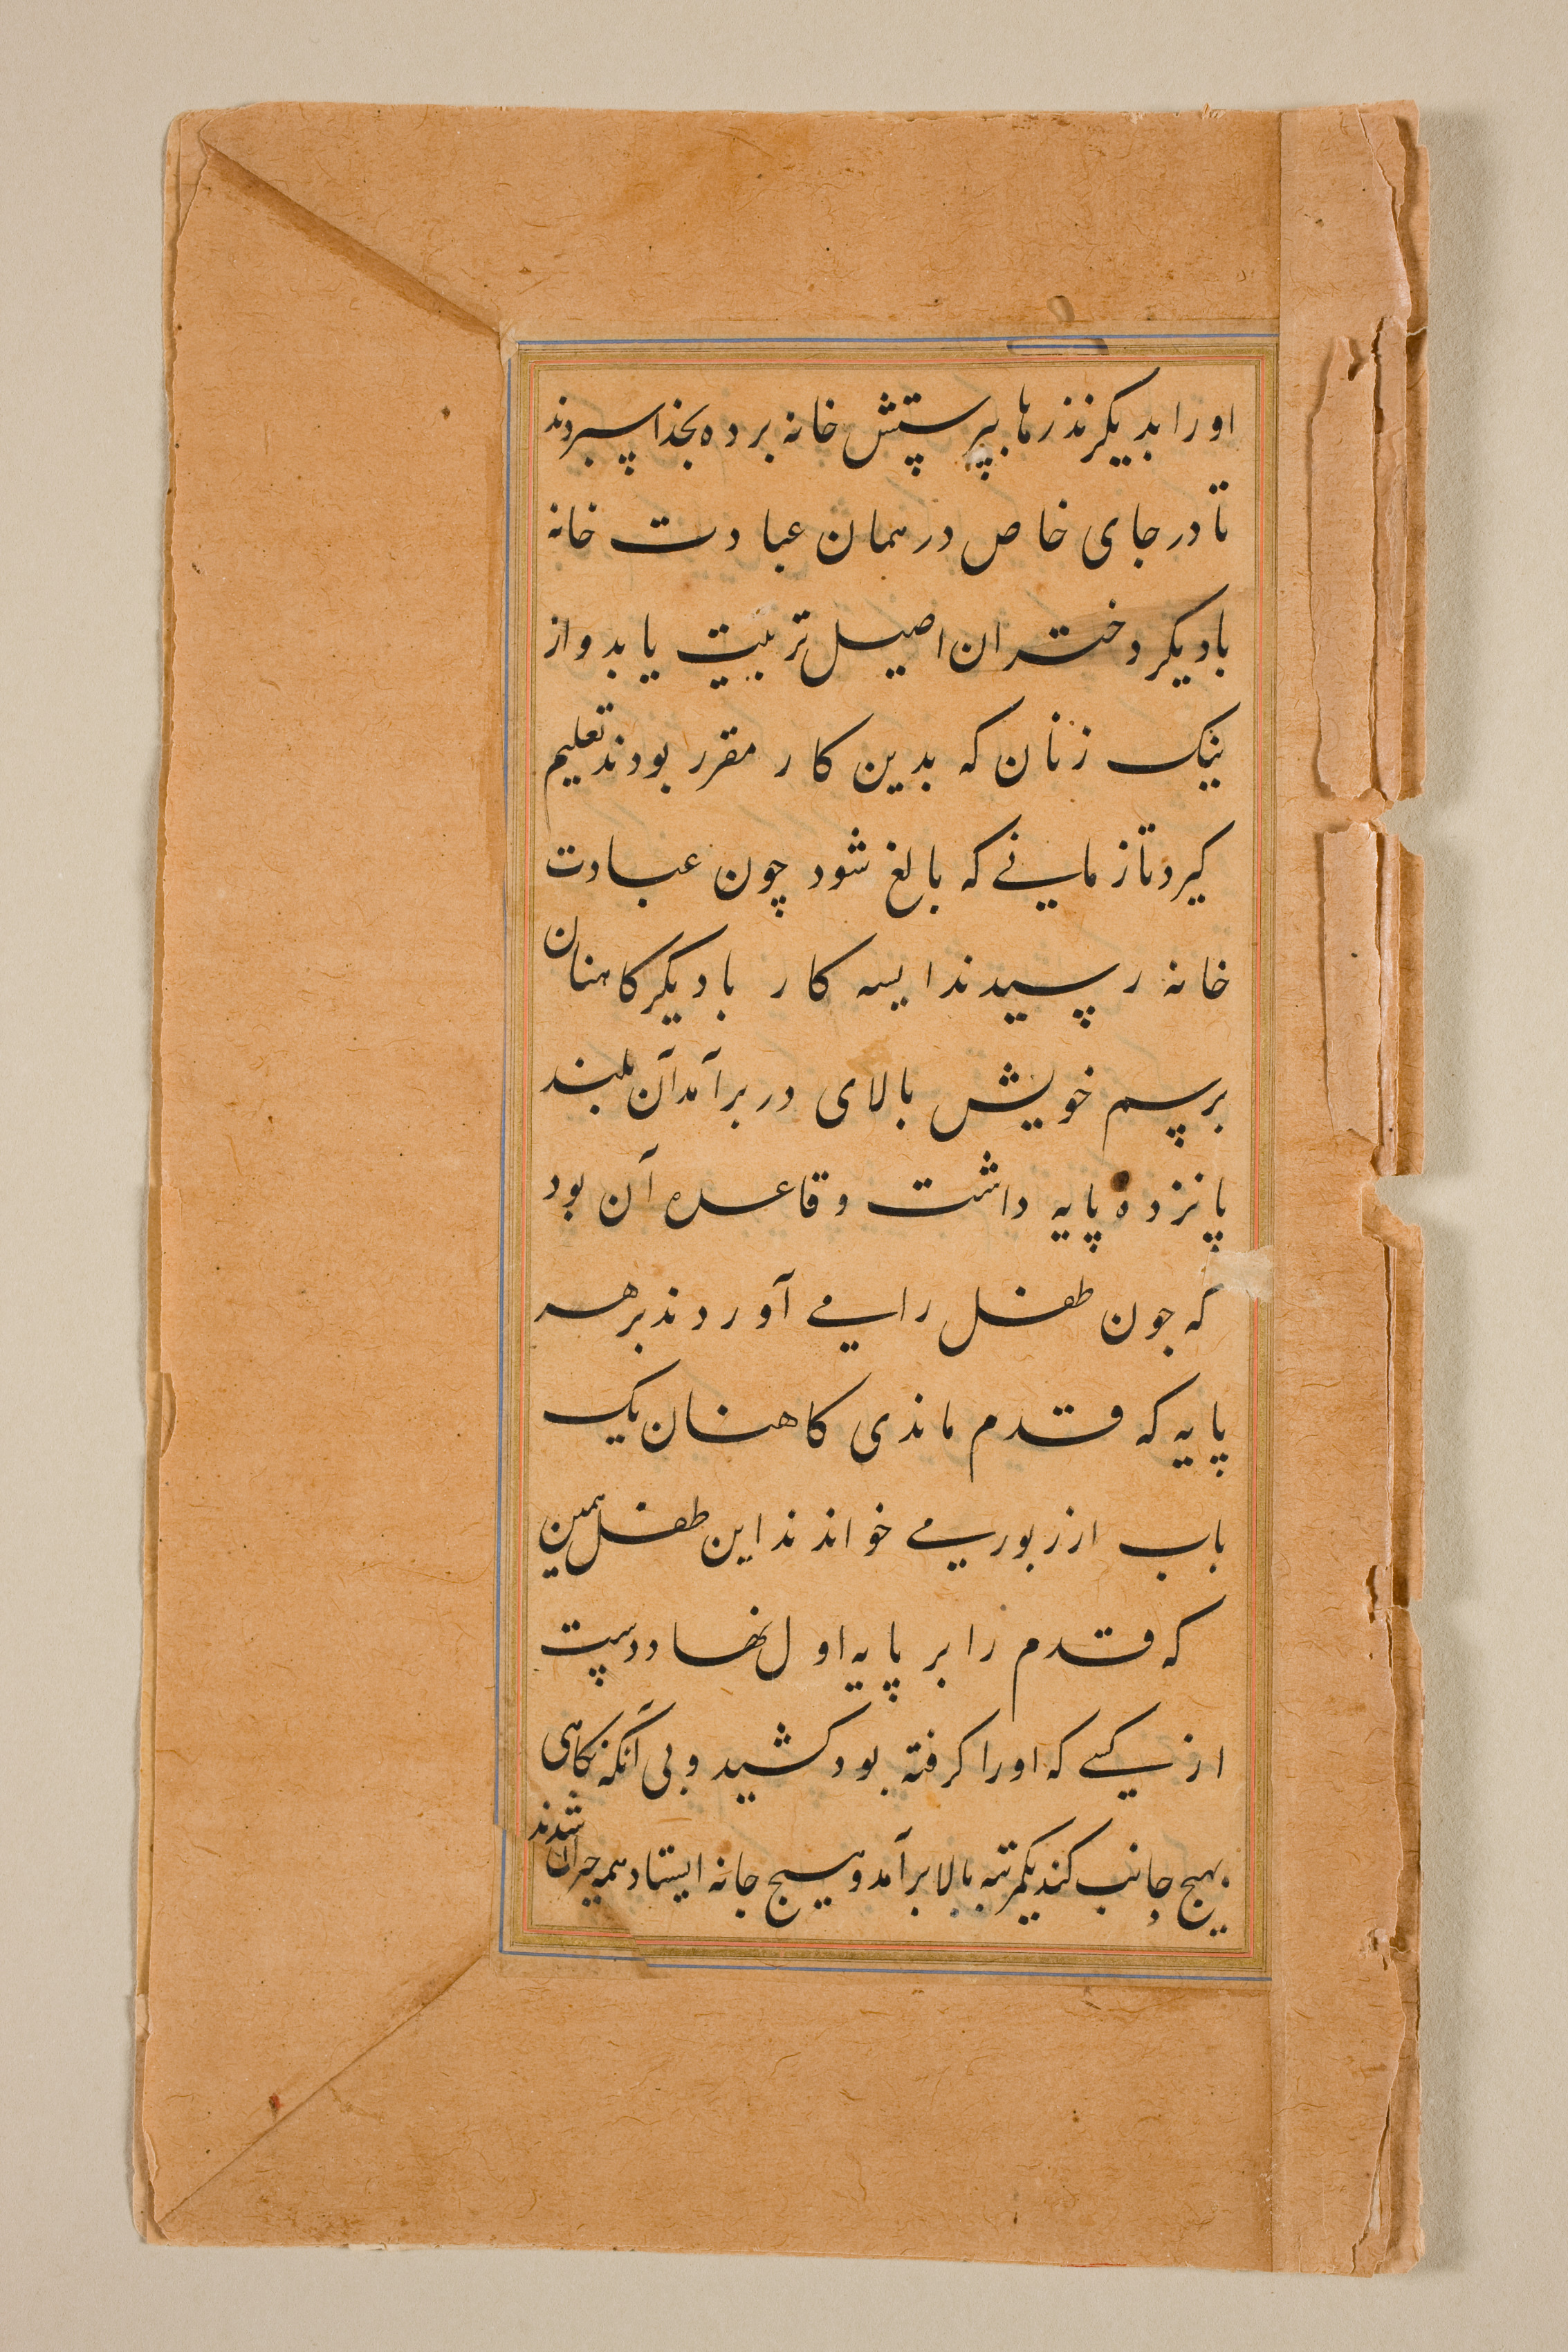 اورا بدیکر نذرها بپرستش خانه برده بخدا سپردند
تا در جای خاص در همان عبادت خانه
با دیکر دختران اصیل تربیت یابد و از
نیک زنان که بدین کار مقرر بودند تعلیم
کیرد تا زمانے که بالغ شود چون عبادت
خانه رسیدند ایسه کار با دیکر کاهنان
برسم خویش بالای در برآمد آن بلند
پانزده پایه داشت و قاعده آن بود
که جون طفل را مے آوردند بر هر
پایه که قدم ماندی کاهنان یک
باب از زبور مے خواندند این طفل همین
که قدم را بر پایه اول نهاد دست
از کسے که اورا کرفته بود کشید و بی آنکه نکاهی
بهیج جانب کند یکمرتبه بالا برآمد و هیج جا نه ایستاد همه حیران شدند